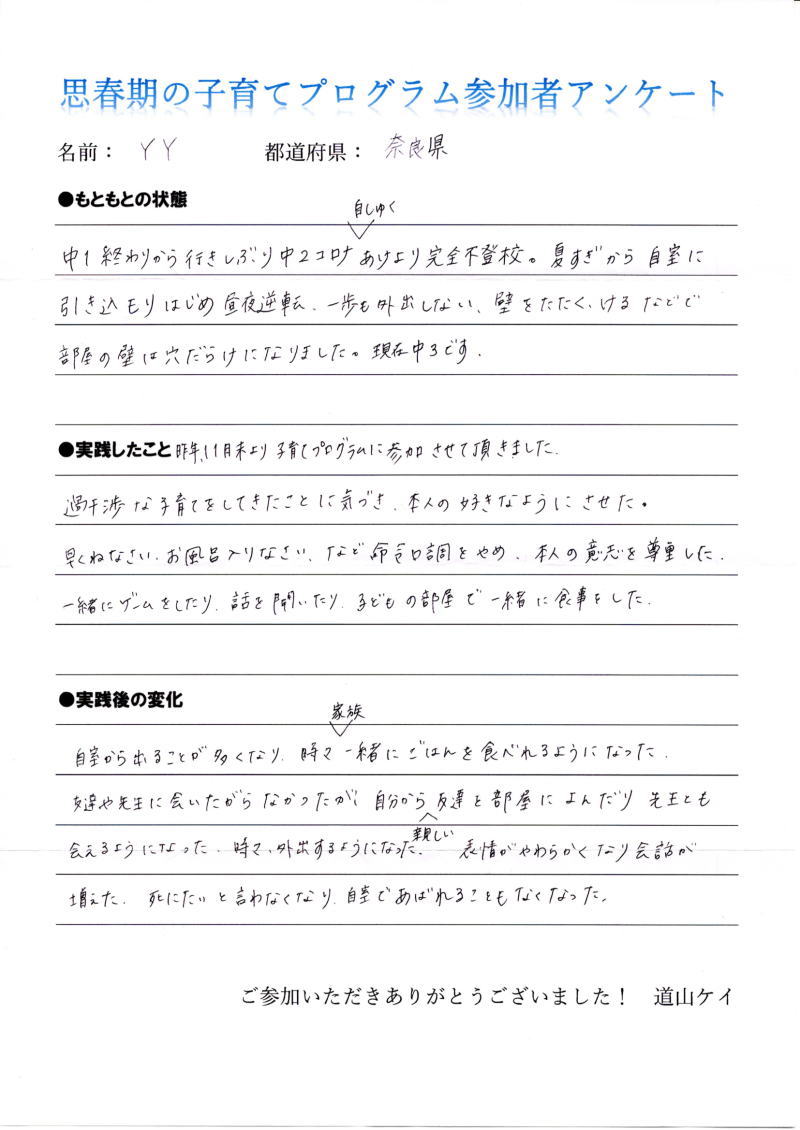 思春期の子育てプログラム参加者アンケート
名前： YY 都道府県： 奈良県
●もともとの状態
自しゅく
中1終わりから行きしぶり中2コロナあけより完全不登校。夏すぎから自室に
引き込もりはじめ昼夜逆転、一歩も外出しない、壁をたたく、けるなどで
部屋の壁は穴だらけになりました。現在中3です。
●実践したこと 昨年、11月末より子育てプログラムに参加させて頂きました。
過干渉な子育てをしてきたことに気づき、本人の好きなようにさせた。
早くねなさい、お風呂入りなさい、など命令口調をやめ、本人の意志を尊重した。
一緒にゲームをしたり、話を聞いたり、子どもの部屋で一緒に食事をした。
●実践後の変化
家族
自室から出ることが多くなり、時々一緒にごはんを食べれるようになった。
友達や先生に会いたがらなかったが、自分から友達を部屋によんだり先生とも
親しい
会えるようになった。時々、外出するようになった。 表情がやわらかくなり会話が
増えた。死にたいと言わなくなり、自室であばれることもなくなった。
ご参加いただきありがとうございました！ 道山ケイ